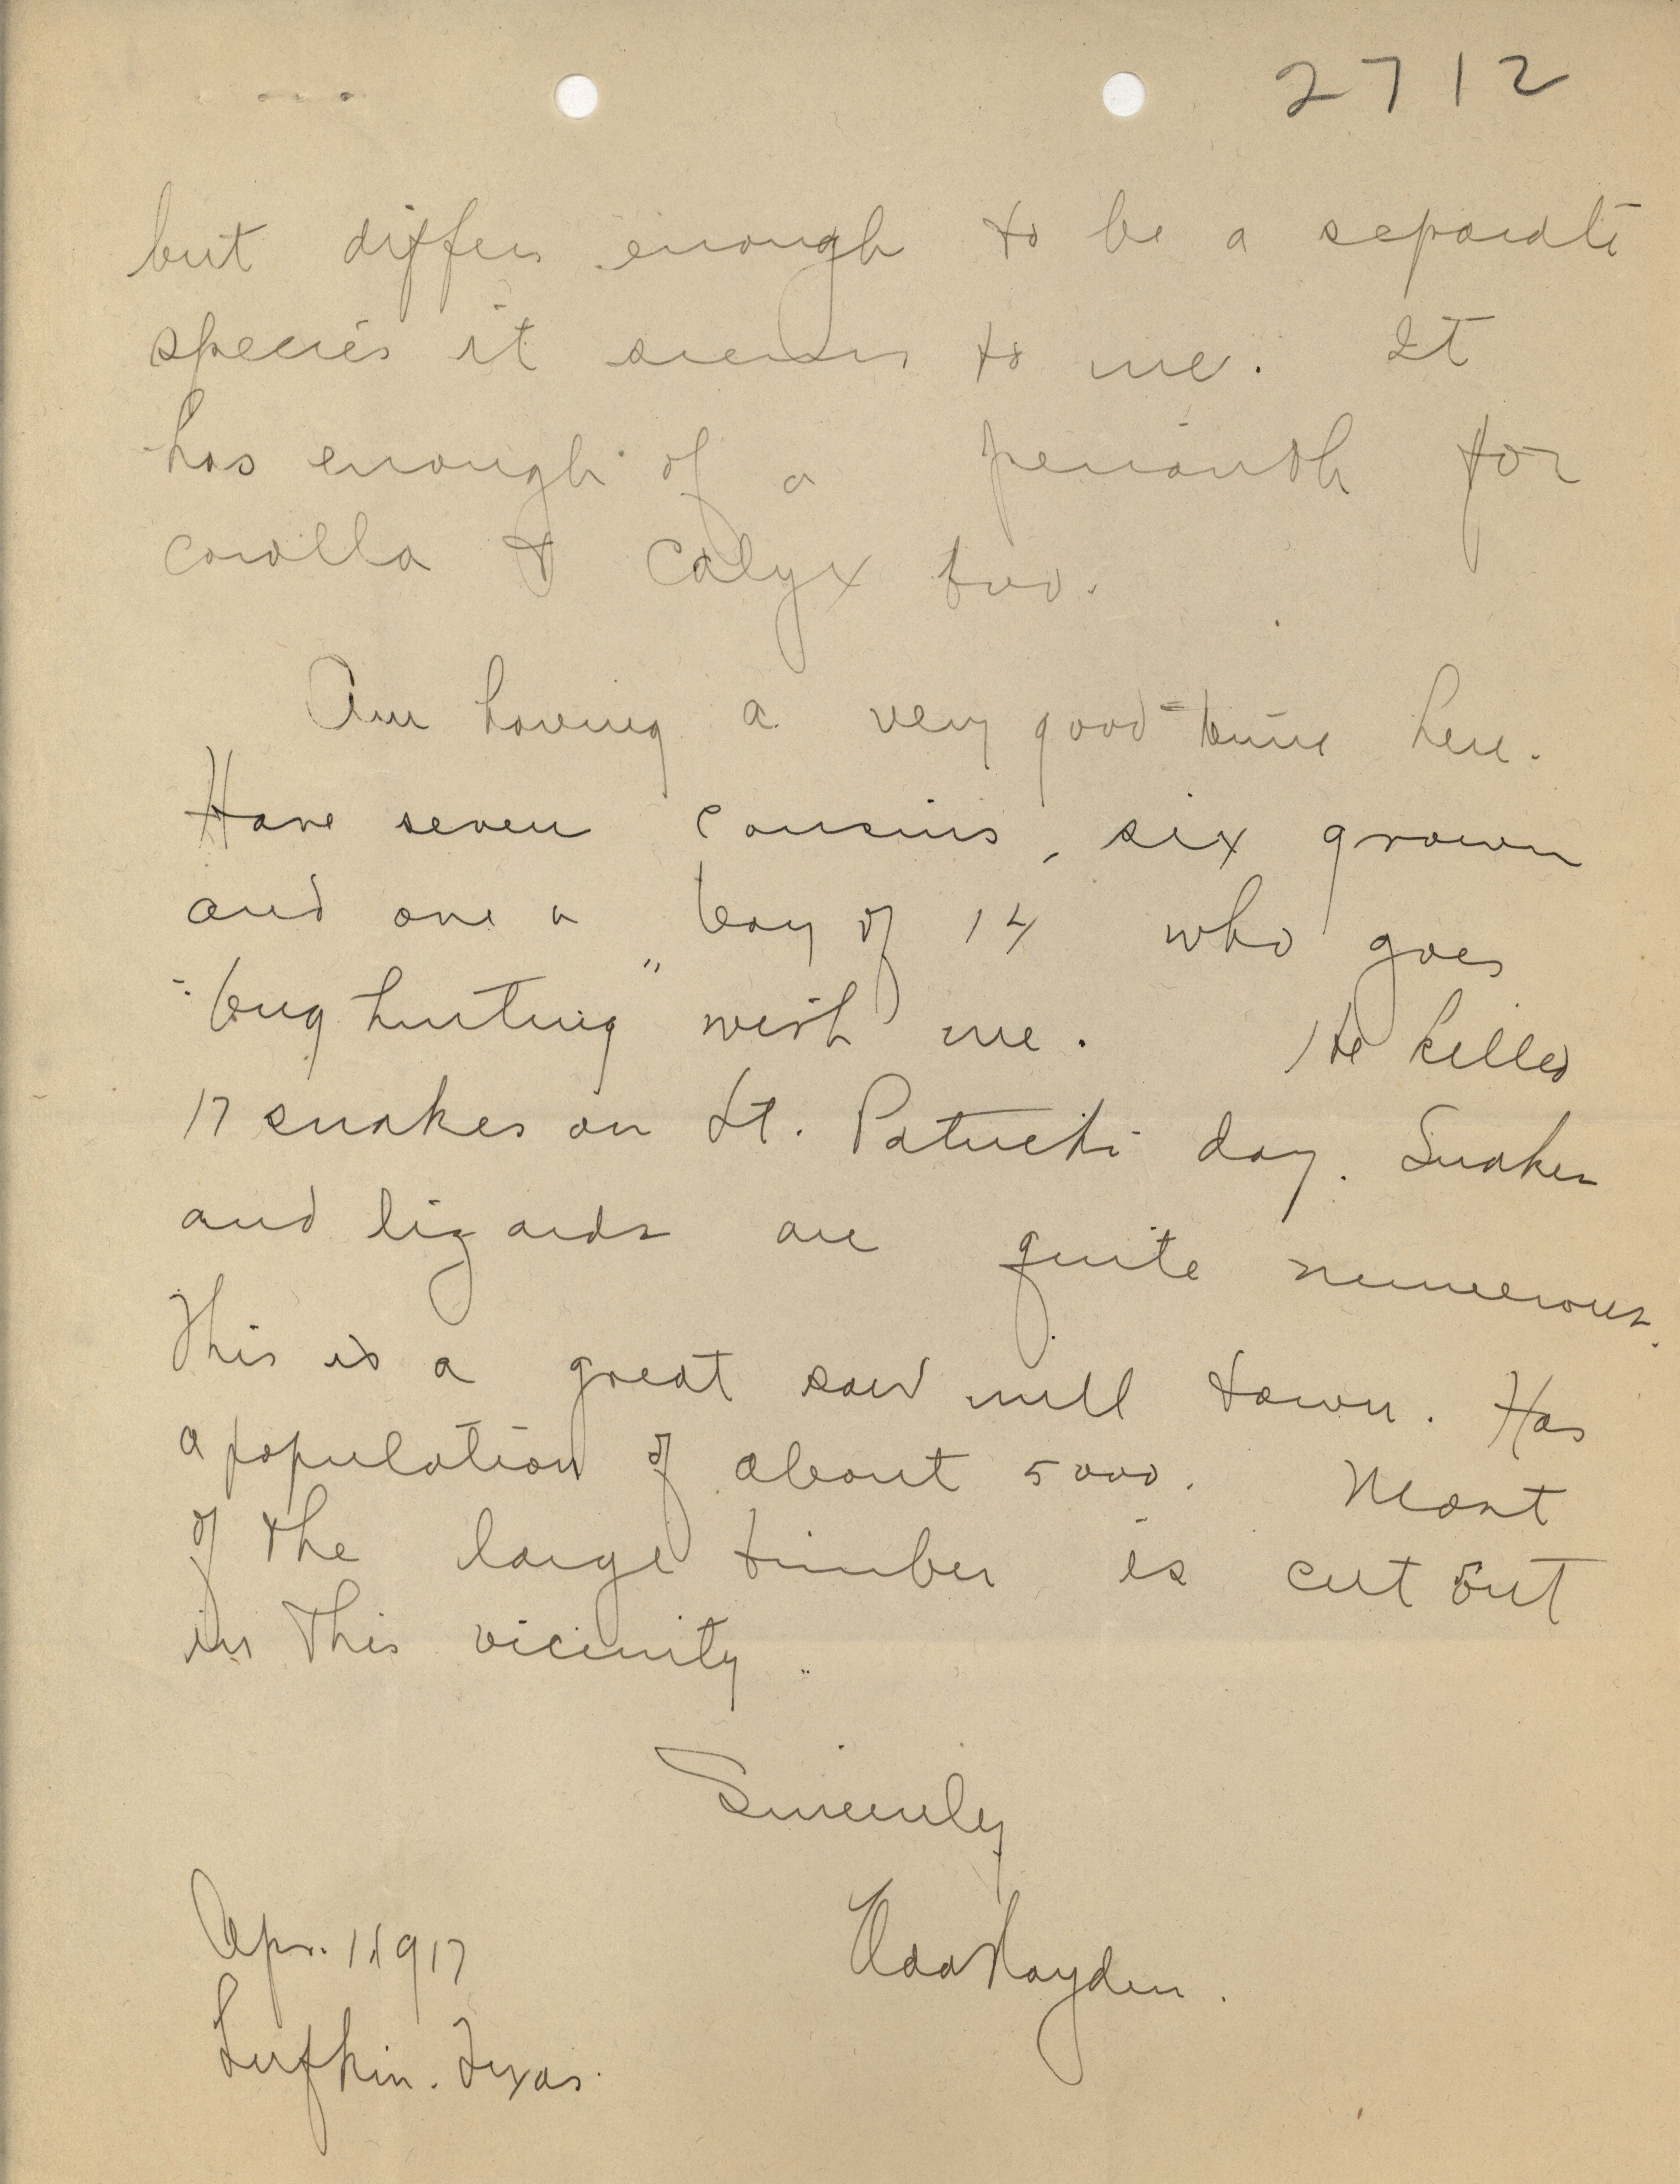 2712
but differs enough to be a separate
species it seems to me. It
has enough of a perianth for
corolla & Calyx two.
Am having a very good time here.
Have seven cousins, six grown
and one a boy of 14 who goes
"bug hunting" with me. He killed
17 snakes on St. Patricks day. Snakes
and lizards are quite numerous.
This is a great saw mill town. Has
a population of about 5000. Most
of the large timber is cut out
in this vicinity.
Sincerely
Ada Hayden.
Apr. 1, 1917
Lufkin. Texas.